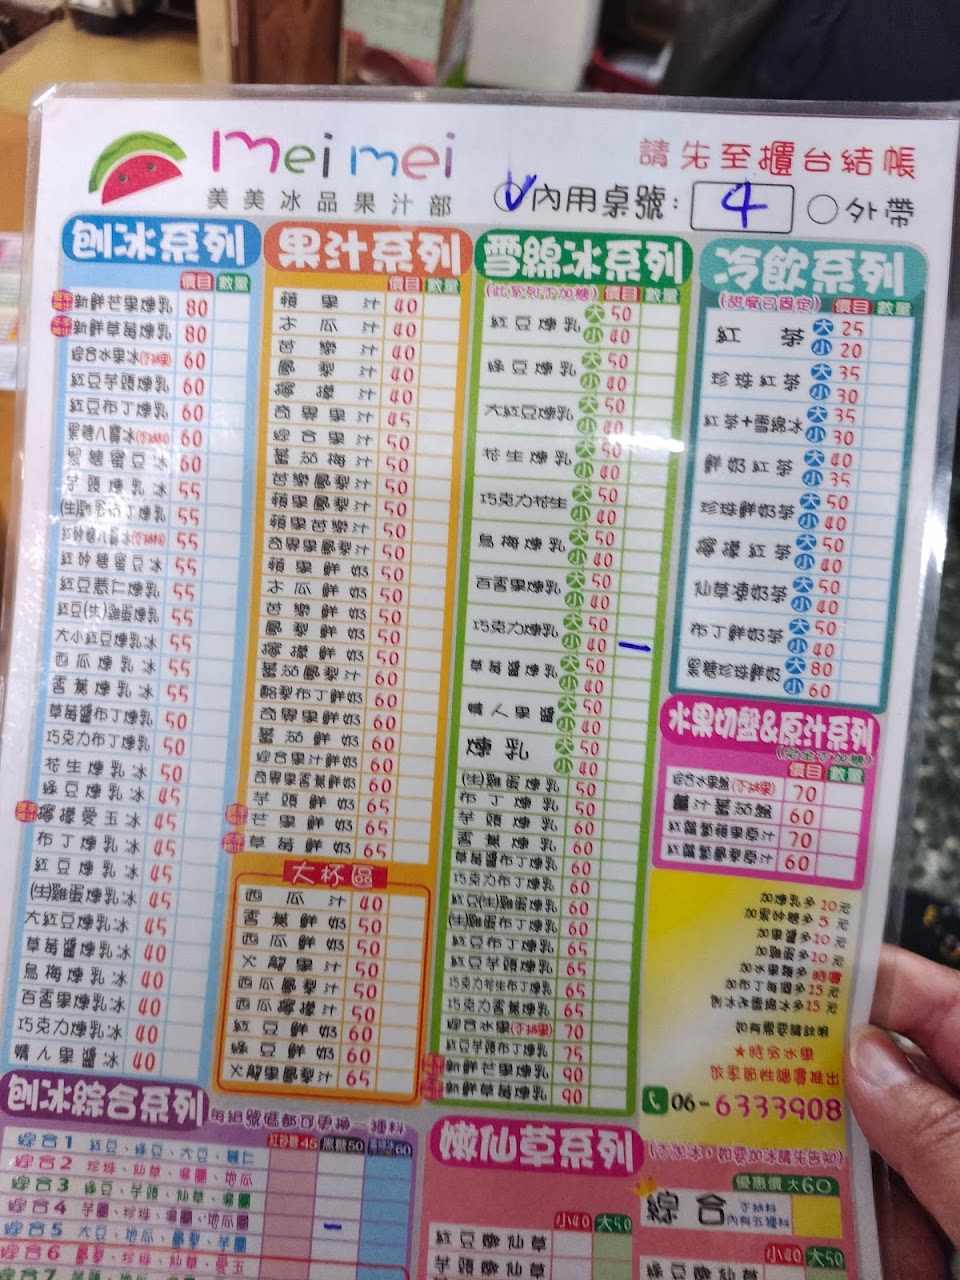 mei mei
美美冰品果汁部
請先至櫃台結帳
內用桌號: 4 外帶
刨冰系列
價目 數量
新鮮芒果煉乳 80
新鮮草莓煉乳 80
綜合水果冰 60
紅豆芋頭煉乳 60
紅豆布丁煉乳 60
黑糖八寶冰 60
黑糖蜜豆冰 60
芋頭煉乳冰 55
(生)雞蛋布丁煉乳 55
紅砂糖八寶冰 55
紅砂糖蜜豆冰 55
紅豆薏仁煉乳 55
紅豆(生)雞蛋煉乳 55
大小紅豆煉乳冰 55
西瓜煉乳冰 55
香蕉煉乳冰 55
草莓醬布丁煉乳 50
巧克力布丁煉乳 50
花生煉乳冰 50
綠豆煉乳冰 45
檸檬愛玉冰 45
布丁煉乳冰 45
紅豆煉乳冰 45
(生)雞蛋煉乳冰 45
大紅豆煉乳冰 45
草莓醬煉乳冰 40
烏梅煉乳冰 40
百香果煉乳冰 40
巧克力煉乳冰 40
情人果醬冰 40
果汁系列
價目 數量
蘋果汁 40
木瓜汁 40
芭樂汁 40
鳳梨汁 40
檸檬汁 40
奇異果汁 45
綜合果汁 50
蕃茄梅汁 50
芭樂鳳梨汁 50
蘋果鳳梨汁 50
蘋果芭樂汁 50
奇異果鳳梨汁 50
蘋果鮮奶 50
木瓜鮮奶 50
芭樂鮮奶 50
鳳梨鮮奶 50
檸檬鮮奶 50
蕃茄鳳梨汁 60
酪梨布丁鮮奶 60
奇異果鮮奶 60
蕃茄鮮奶 60
綜合果汁鮮奶 60
奇異果香蕉鮮奶 60
芋頭鮮奶 65
芒果鮮奶 65
草莓鮮奶 65
大杯區
西瓜汁 40
香蕉鮮奶 50
西瓜鮮奶 50
火龍果汁 50
西瓜鳳梨汁 50
西瓜檸檬汁 50
紅豆鮮奶 60
綠豆鮮奶 60
火龍果鳳梨汁 65
雪綿冰系列
(此系列不加糖) 價目 數量
紅豆煉乳 大 50 小 40
綠豆煉乳 大 50 小 40
大紅豆煉乳 大 50 小 40
花生煉乳 大 50 小 40
巧克力花生 大 50 小 40
烏梅煉乳 大 50 小 40
百香果煉乳 大 50 小 40
巧克力煉乳 大 50 小 40 一
草莓醬煉乳 大 50 小 40
情人果醬 大 50 小 40
煉乳 大 50 小 40
(生)雞蛋煉乳 50
布丁煉乳 50
芋頭煉乳 60
香蕉煉乳 60
草莓醬布丁煉乳 60
巧克力布丁煉乳 60
紅豆(生)雞蛋煉乳 60
(生)雞蛋布丁煉乳 60
紅豆布丁煉乳 65
紅豆芋頭煉乳 65
巧克力花生布丁煉乳 65
巧克力香蕉煉乳 65
綜合水果 70
紅豆芋頭布丁煉乳 75
新鮮芒果煉乳 90
新鮮草莓煉乳 90
冷飲系列
(甜度已固定) 價目 數量
紅茶 大 25 小 20
珍珠紅茶 大 35 小 30
紅茶+雪綿冰 大 35 小 30
鮮奶紅茶 大 40 小 35
珍珠鮮奶茶 大 50 小 40
檸檬紅茶 大 50 小 40
仙草凍奶茶 大 50 小 40
布丁鮮奶茶 大 50 小 40
黑糖珍珠鮮奶 大 80 小 60
水果切盤&原汁系列
(完全不加糖)
價目 數量
綜合水果盤 70
薑汁蕃茄盤 60
紅蘿蔔蘋果原汁 70
紅蘿蔔鳳梨原汁 60
加煉乳多10元
加黑砂糖多5元
加果醬多10元
加雞蛋多10元
加水果類多時價
加布丁每個多15元
刨冰改雪綿冰多15元
如有需要請註明
★時令水果
依季節性調價推出
06-6333908
刨冰綜合系列
每組號碼都可更換一種料
紅砂糖45 黑糖50 60
綜合1 紅豆、綠豆、大豆、薏仁
綜合2 珍珠、仙草、湯圓、地瓜
綜合3 綠豆、芋頭、仙草、湯圓
綜合4 芋圓、珍珠、湯圓、地瓜圓
綜合5 大豆、地瓜、鳳梨、芋圓
綜合6 鳳梨、珍珠、仙草、愛玉
綜合7
嫩仙草系列
小40 大50
紅豆嫩仙草
芋頭嫩仙草
優惠價 大60
綜合
內有五種料
小40 大50
綠豆嫩仙草